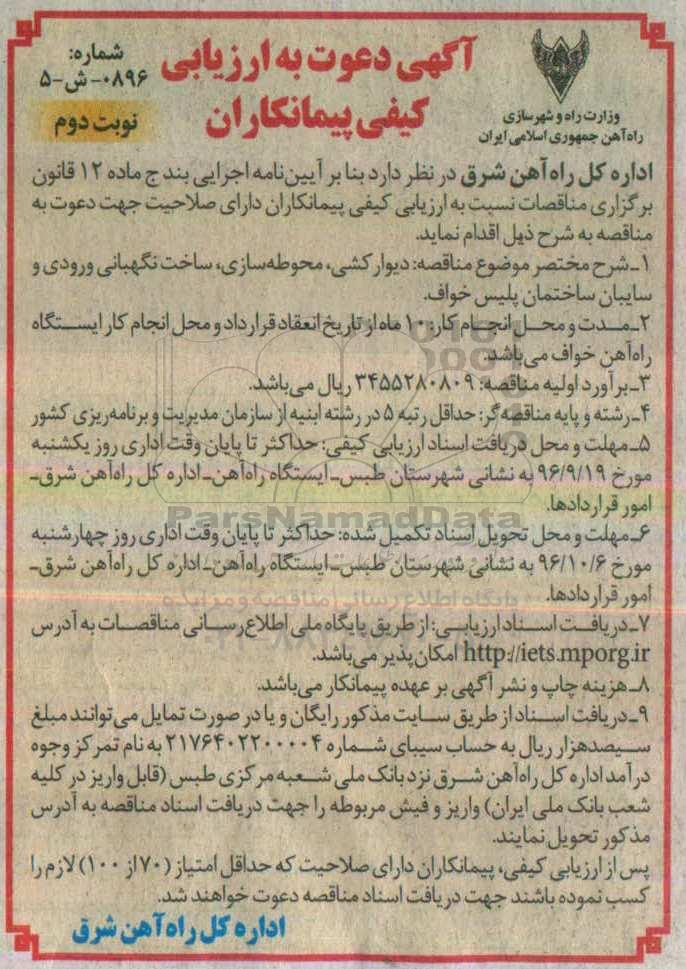 آگهی دعوت به ارزیابی
کیفی پیمانکاران
شماره:
۰۸۹۶-ش-۵
نوبت دوم
وزارت راه و شهرسازی
راه‌آهن جمهوری اسلامی ایران
اداره کل راه‌آهن شرق در نظر دارد بنا بر آیین‌نامه اجرایی بند ج ماده ۱۲ قانون
برگزاری مناقصات نسبت به ارزیابی کیفی پیمانکاران دارای صلاحیت جهت دعوت به
مناقصه به شرح ذیل اقدام نماید.
۱ـ شرح مختصر موضوع مناقصه: دیوارکشی، محوطه‌سازی، ساخت نگهبانی ورودی و
سایبان ساختمان پلیس خواف.
۲ـ مدت و محل انجام کار: ۱۰ ماه از تاریخ انعقاد قرارداد و محل انجام کار ایستگاه
راه‌آهن خواف می‌باشد.
۳ـ برآورد اولیه مناقصه: ۳۴۵۵۲۸۰۸۰۹ ریال می‌باشد.
۴ـ رشته و پایه مناقصه‌گر: حداقل رتبه ۵ در رشته ابنیه از سازمان مدیریت و برنامه‌ریزی کشور
۵ـ مهلت و محل دریافت اسناد ارزیابی کیفی: حداکثر تا پایان وقت اداری روز یکشنبه
مورخ ۹۶/۹/۱۹ به نشانی شهرستان طبس ـ ایستگاه راه‌آهن ـ اداره کل راه‌آهن شرق ـ
امور قراردادها.
ParsNamadData
۶ـ مهلت و محل تحویل اسناد تکمیل شده: حداکثر تا پایان وقت اداری روز چهارشنبه
مورخ ۹۶/۱۰/۶ به نشانی شهرستان طبس ـ ایستگاه راه‌آهن ـ اداره کل راه‌آهن شرق ـ
امور قراردادها.
پایگاه اطلاع رسانی مناقصه و مزایده
۷ـ دریافت اسناد ارزیابی: از طریق پایگاه ملی اطلاع‌رسانی مناقصات به آدرس
http://iets.mporg.ir امکان‌پذیر می‌باشد.
۸ـ هزینه چاپ و نشر آگهی بر عهده پیمانکار می‌باشد.
۹ـ دریافت اسناد از طریق سایت مذکور رایگان و یا در صورت تمایل می‌توانند مبلغ
سیصدهزار ریال به حساب سیبای شماره ۲۱۷۶۴۰۲۲۰۰۰۰۴ به نام تمرکز وجوه
درآمد اداره کل راه‌آهن شرق نزد بانک ملی شعبه مرکزی طبس (قابل واریز در کلیه
شعب بانک ملی ایران) واریز و فیش مربوطه را جهت دریافت اسناد مناقصه به آدرس
مذکور تحویل نمایند.
پس از ارزیابی کیفی، پیمانکاران دارای صلاحیت که حداقل امتیاز (۷۰ از ۱۰۰) لازم را
کسب نموده باشند جهت دریافت اسناد مناقصه دعوت خواهند شد.
اداره کل راه‌آهن شرق